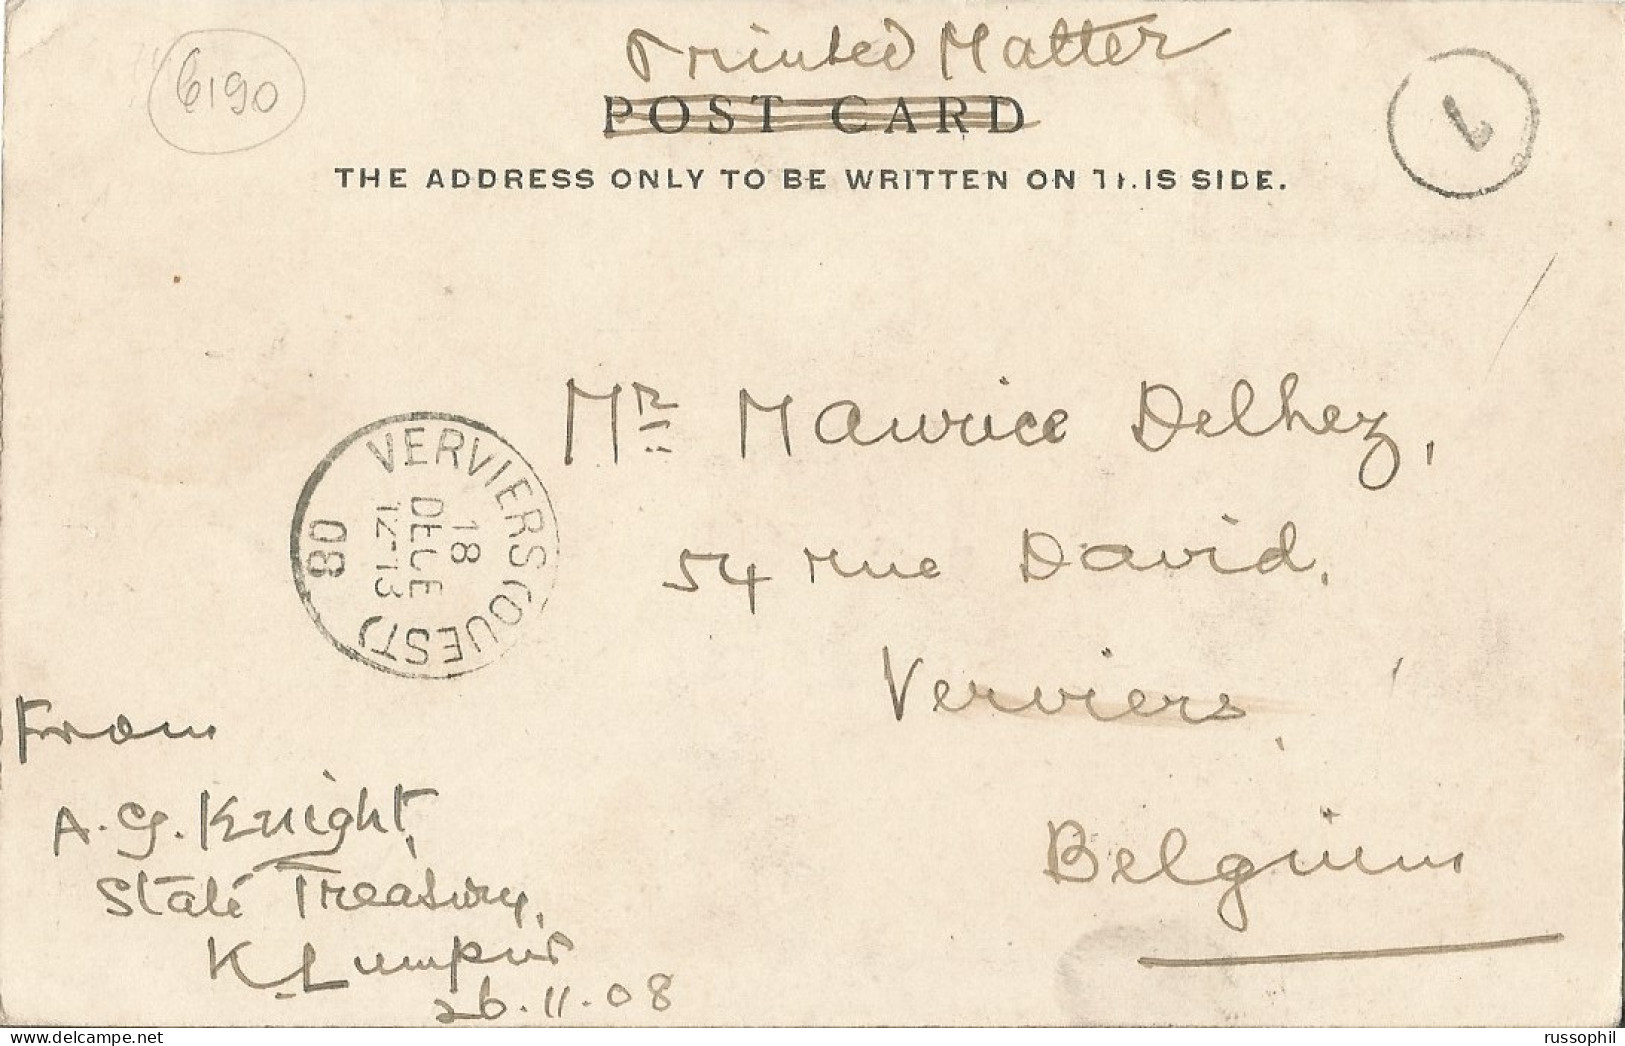 6190
Printed Matter
POST CARD
THE ADDRESS ONLY TO BE WRITTEN ON THIS SIDE.
Mr Maurice Delhez,
54 rue David.
Verviers,
Belgium
VERVIERS (OUEST)
18
DECE
12-13
08
From
A. G. Knight,
State Treasury,
K. Lumpur
26.11.08
www.delcampe.net
russophil